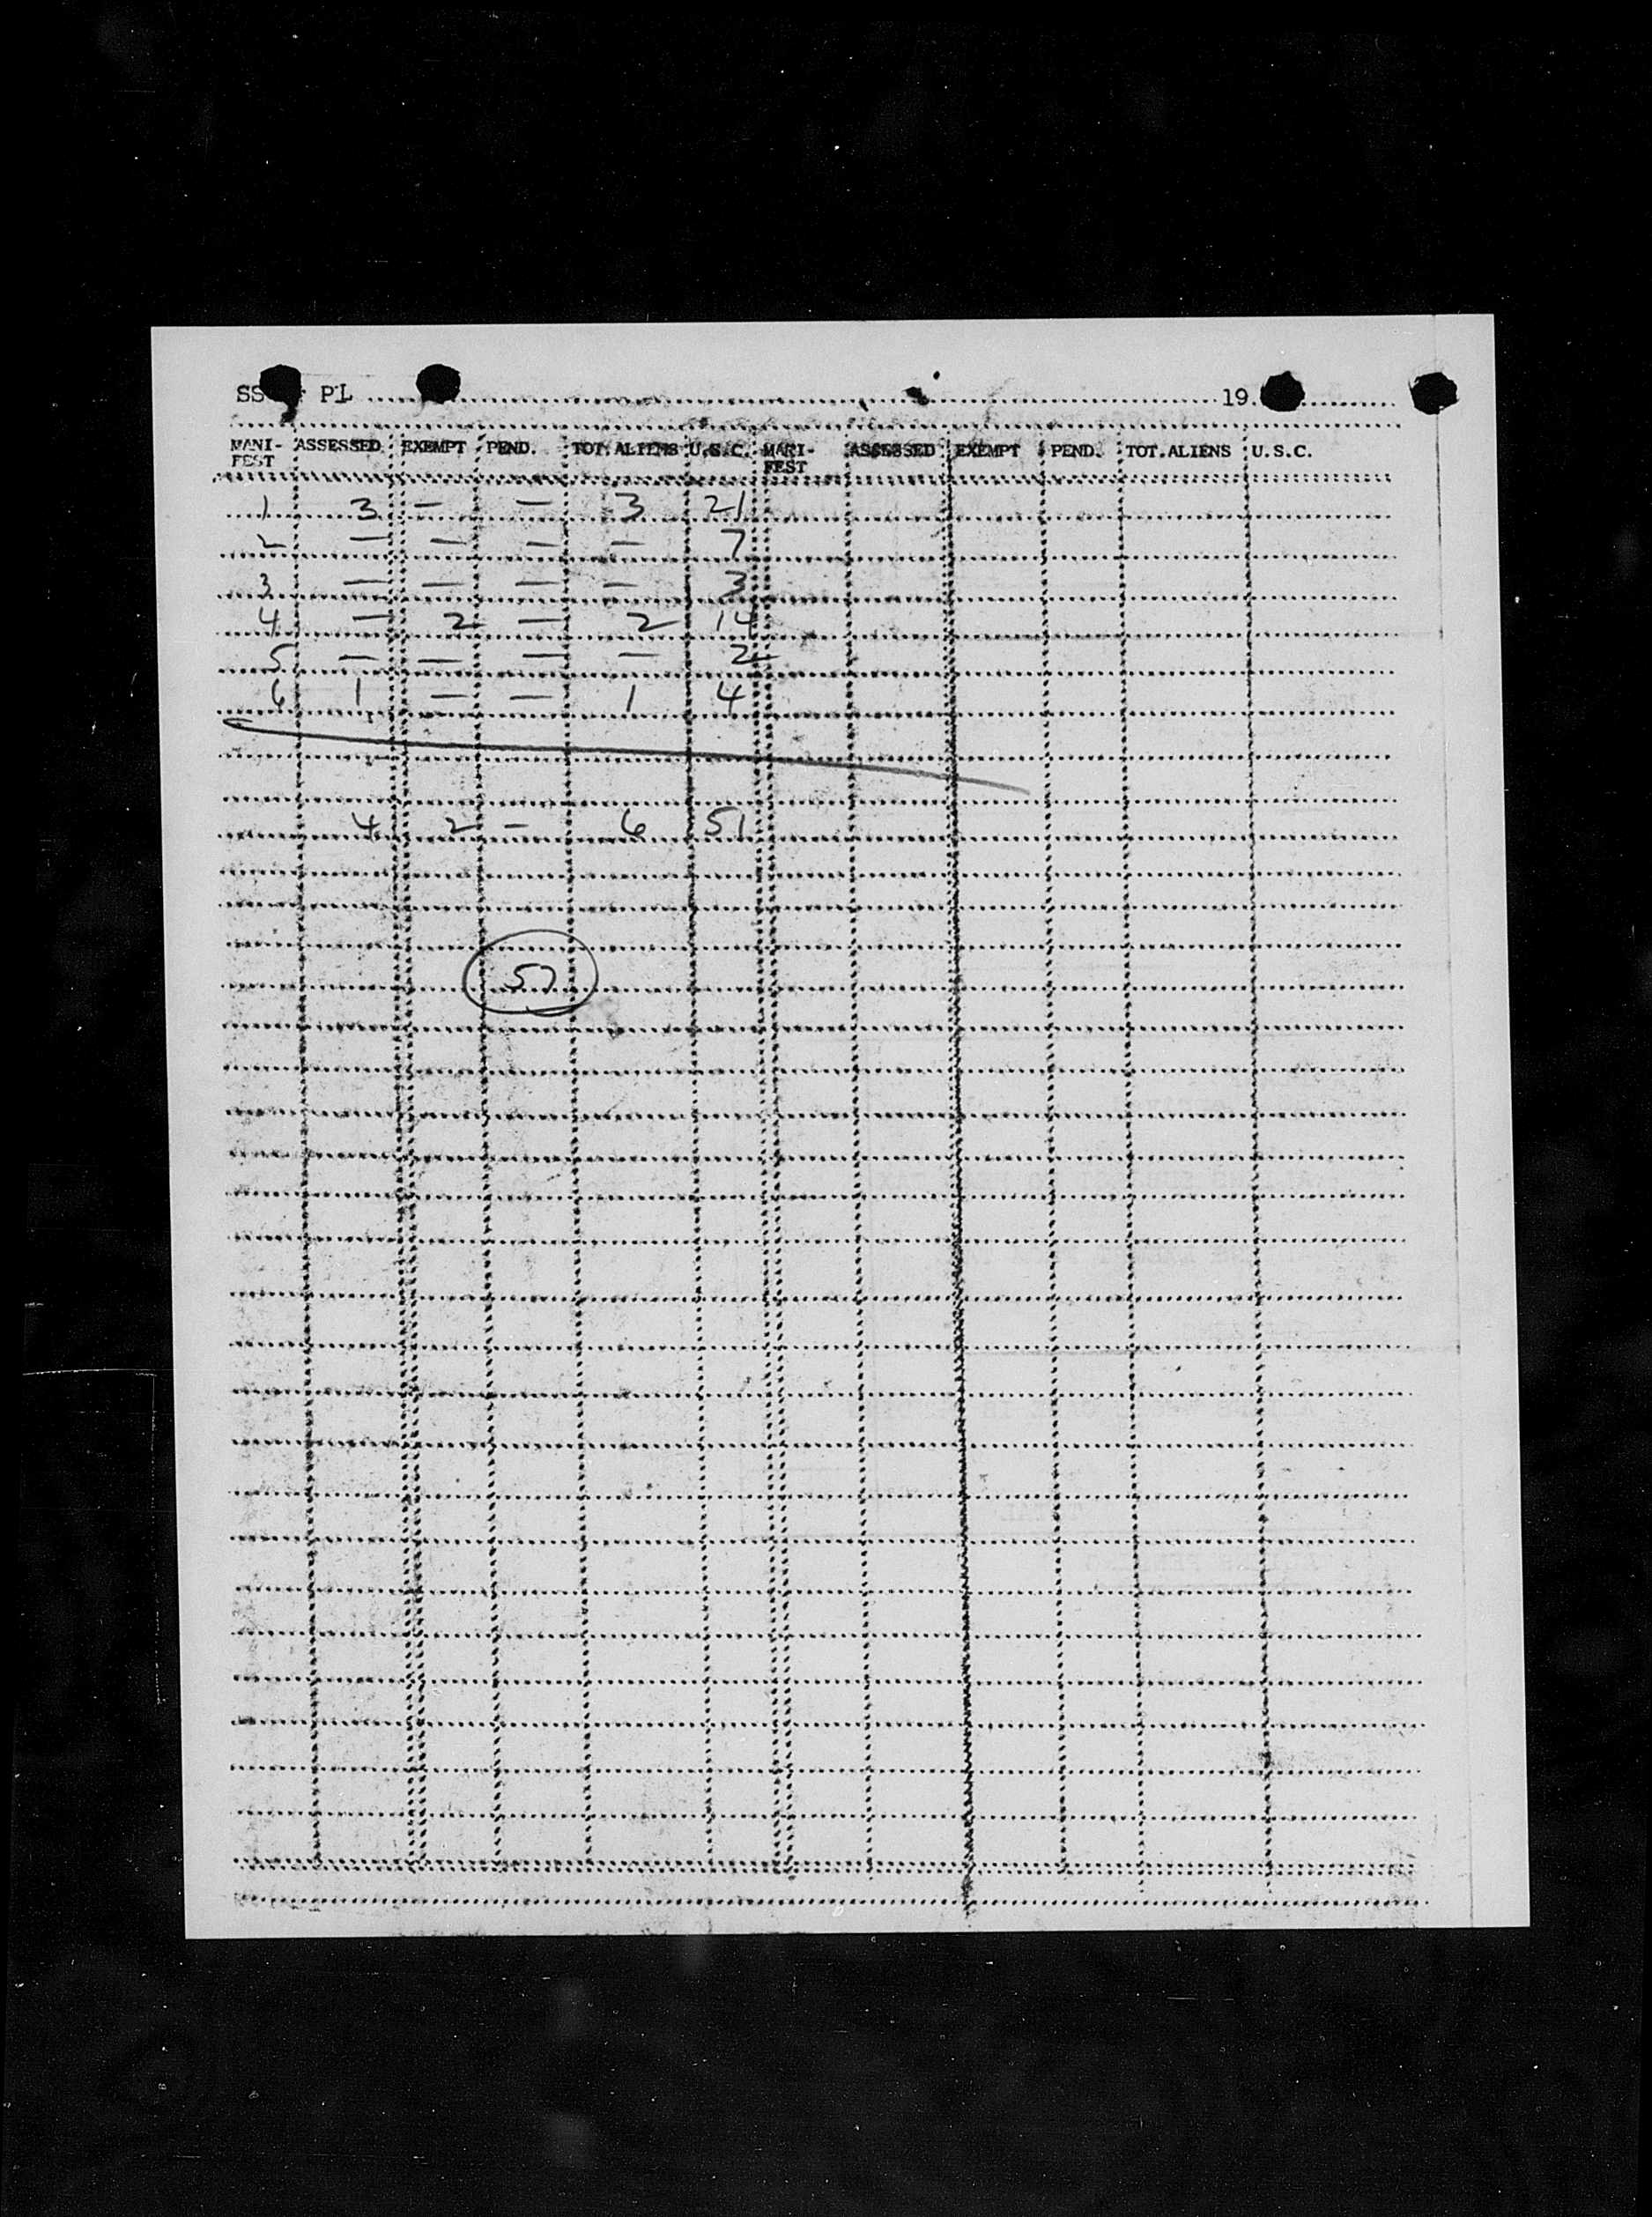 SS PL 19
MANI- ASSESSED EXEMPT PEND. TOT. ALIENS U.S.C. MANI- ASSESSED EXEMPT PEND. TOT. ALIENS U.S.C.
FEST FEST
1 3 — — 3 21
2 — — — — 7
3 — — — — 3
4 — 2 — 2 14
5 — — — — 2
6 1 — — 1 4
4 2 — 6 51
57